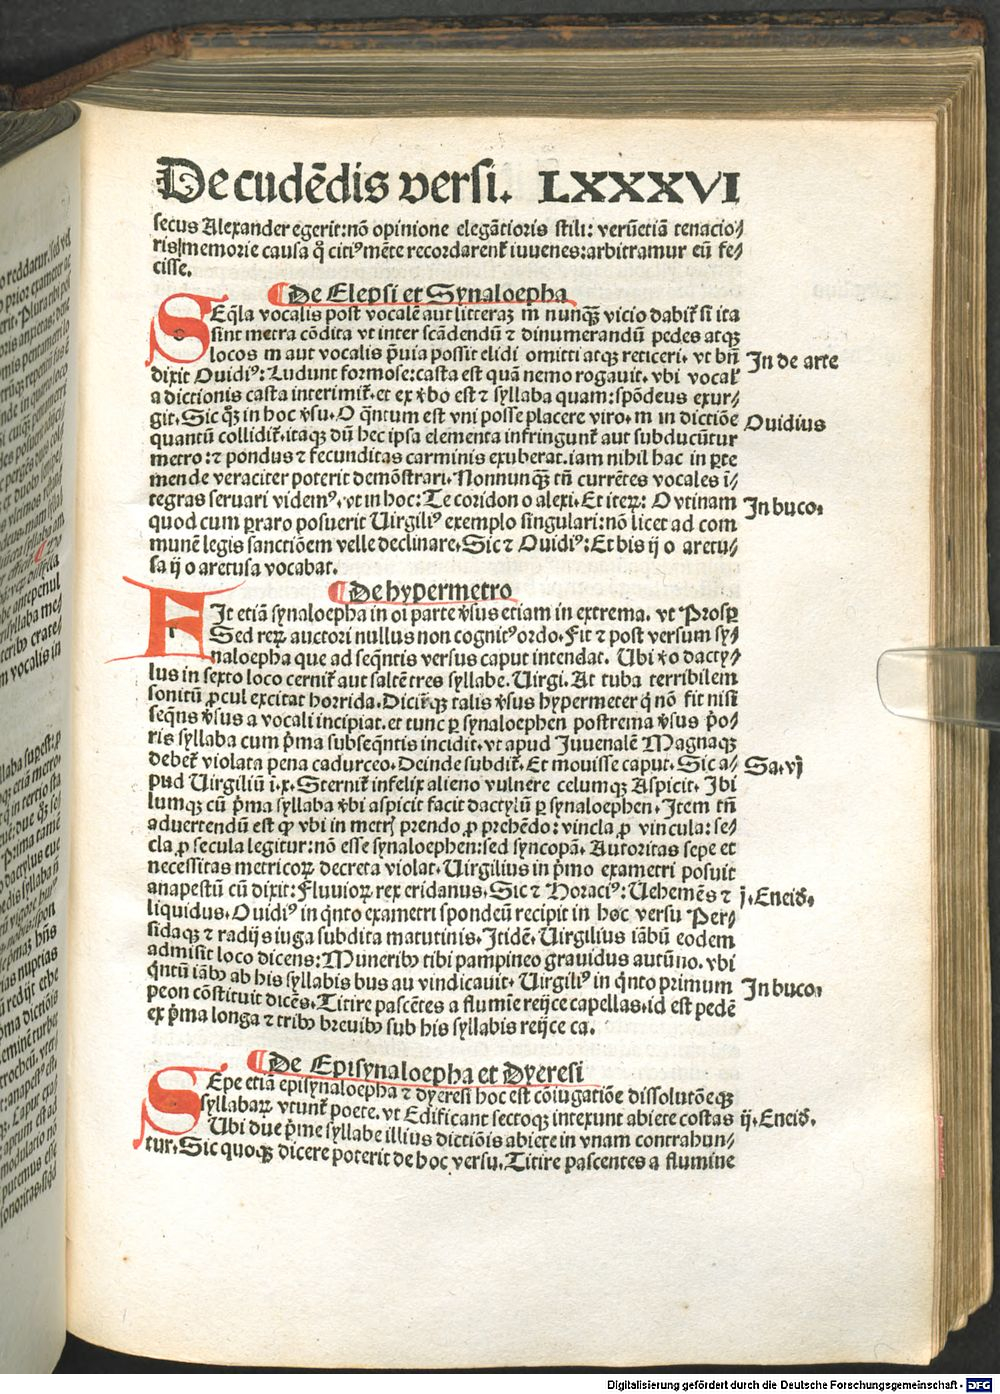 De cudēdis versi. LXXXVI
secus Alexander egerit: nō opinione elegātioris stili: verūetiā tenacio⸗
ris memorie causa ꝙ citiꝰ mēte recordarent᷑ iuuenes: arbitramur eū fe⸗
cisse.
¶ De Elepsi et Synaloepha
SEqͥla vocalis post vocalē aut litteraꝫ m nunqꝫ vicio dabit᷑ si ita
sint metra cōdita vt inter scādendū ⁊ dinumerandū pedes atqꝫ
locos m aut vocalis p̄uia possit elidi omitti atqꝫ reticeri. vt bn̄
In de arte
dixit Ouidiꝰ: Ludunt formose: casta est quā nemo rogauit. vbi vocal᷑
a dictionis casta interimit᷑. et ex v̄bo est ⁊ syllaba quam: spōdeus exur⸗
git. Sic qꝫ in hoc v̄su. O qͣntum est vni posse placere viro. m in dictiōe
Ouidius
quantū collidit᷑. itaqꝫ dū hec ipsa elementa infringunt᷑ aut subducūtur
metro: ⁊ pondus ⁊ fecunditas carminis exuberat. iam nihil hac in ꝑte
mende veraciter poterit demōstrari. Nonnunqꝫ tn̄ currētes vocales ī⸗
tegras seruari videmꝰ. vt in hoc: Te coridon o alexi. Et iteꝝ: O vtinam
In buco.
quod cum ꝑraro posuerit Uirgiliꝰ exemplo singulari: nō licet ad com
munē legis sanctiōem velle declinare. Sic ⁊ Ouidiꝰ: Et bis ij o aretu⸗
sa ij o aretusa vocabat.
¶ De hypermetro
FIt etiā synaloepha in oi parte v̄sus etiam in extrema. vt Prosꝑ
Sed reꝝ auctori nullus non cognitꝰ ordo. Fit ⁊ post versum sy⸗
naloepha que ad seqn̄tis versus caput intendat. Ubi v̄o dacty⸗
lus in sexto loco cernit᷑ aut saltē tres syllabe. Uirgi. At tuba terribilem
sonitū ꝓcul excitat horrida. Dicit᷑qꝫ talis v̄sus hypermeter qͥ nō fit nisi
seqn̄s v̄sus a vocali incipiat. et tunc ꝑ synaloephen postrema v̄sus p̄o⸗
ris syllaba cum p̄ma subseqn̄tis incidit. vt apud Juuenalē Magnaqꝫ
debet᷑ violata pena cadurceo. Deinde subdit᷑. Et mouisse caput. Sic a⸗
Sa. vj
pud Uirgiliū i. x. Sternit᷑ infelix alieno vulnere celumqꝫ Aspicit. Ibi
lumqꝫ cū p̄ma syllaba v̄bi aspicit facit dactylū ꝑ synaloephen. Item tn̄
aduertendū est ꝙ vbi in metrꝭ prendo ꝓ prehēdo: vincla ꝓ vincula: se⸗
cla ꝓ secula legitur: nō esse synaloephen: sed syncopā. Autoritas sepe et
necessitas metricoꝝ decreta violat. Uirgilius in p̄mo exametri posuit
anapestū cū dixit: Fluuioꝝ rex eridanus. Sic ⁊ Horaciꝰ: Uehemēs ⁊
j. Eneid̄.
liquidus. Ouidiꝰ in qͥnto exametri spondeū recipit in hoc versu Per⸗
sidaqꝫ ⁊ radijs iuga subdita matutinis. Itidē. Uirgilius iābū eodem
admisit loco dicens: Muneribꝰ tibi pampineo grauidus autūno. vbi
qͣntū iābū ab his syllabis bus au vindicauit. Uirgiliꝰ in qͥnto primum
In buco.
peon cōstituit dicēs. Titire pascētes a flumīe reijce capellas. id est pedē
ex p̄ma longa ⁊ tribꝰ breuibꝰ sub his syllabis reijce ca.
¶ De Episynaloepha et Dyeresi
SEpe etiā episynaloepha ⁊ dyeresi hoc est cōiugatiōe dissolutōeqꝫ
syllabaꝝ vtunt᷑ poete. vt Edificant sectoqꝫ intexunt abiete costas
ij. Eneid̄.
Ubi due p̄me syllabe illius dictiōis abiete in vnam contrahun⸗
tur. Sic quoqꝫ dicere poterit de hoc versu. Titire pascentes a flumine
Digitalisierung gefördert durch die Deutsche Forschungsgemeinschaft - DFG